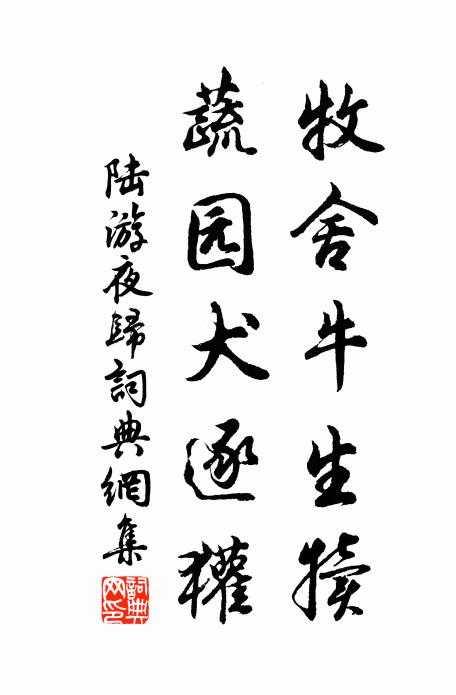 牧舍牛生犊
蔬园犬逐獾
陆游夜歸詞典網集
詞典网印